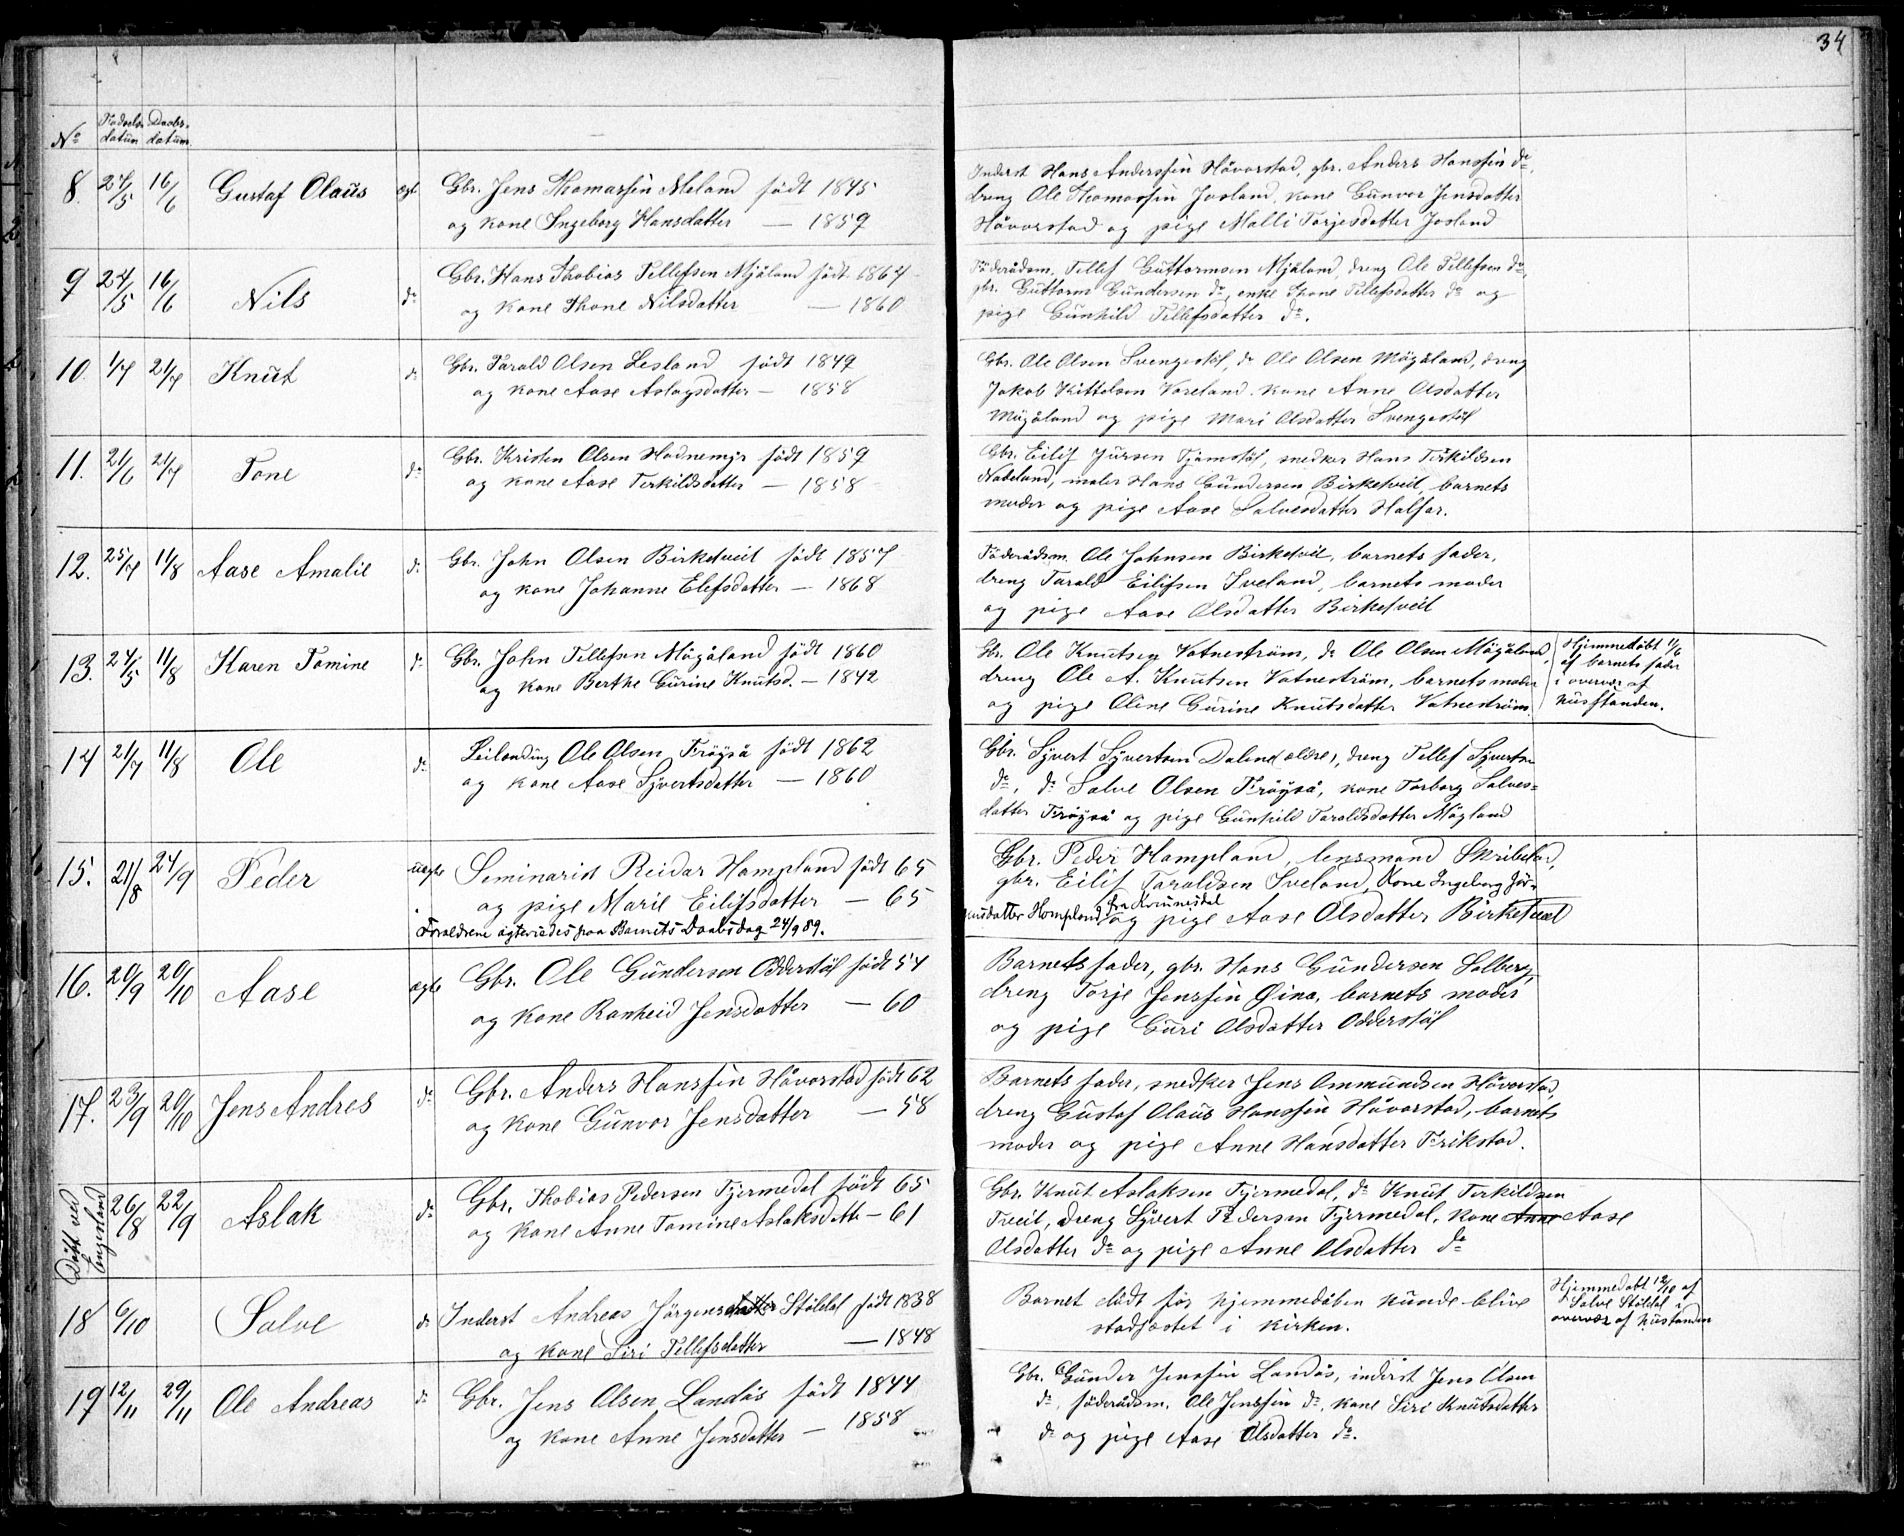 34
No Fødsels- datum Daabs- datum.
8. 24/5 16/6 Gustaf Olaüs ægt Gbr. Jens Thomassen Meland födt 1845
og kone Ingeborg Hansdatter — 1859
Inderst Hans Anderssen Håvorstad, gbr. Anders Hanssen do,
dreng Ole Thomassen Josland, kone Gunvor Jensdatter
Håvorstad og pige Malli Torjesdatter Josland
9 24/5 16/6 Nils do Gbr. Hans Thobias Tellefsen Mjåland födt 1864
og kone Thone Nilsdatter — 1860
Föderådsm. Tellef Guttormsen Mjåland, dreng Ole Tellefsen do,
gbr. Guttorm Gundersen do, enke Thone Tellefsdatter do og
pige Gunhild Tellefsdatter do.
10. 1/7 21/7 Knut do Gbr. Tarald Olsen Lesland födt 1849
og kone Aase Aslagsdatter — 1858
Gbr. Ole Olsen Svengestöl, do Ole Olsen Mögåland, dreng
Jakob Kittelsen Vareland. kone Anne Olsdatter
Mögåland og pige Mari Olsdatter Svengestöl
11. 21/6 21/7 Tone do Gbr. Kristen Olsen Hodnemyr födt 1859
og kone Aase Terkildsdatter — 1858
Gbr. Eilif Jürsen Tjömstöl, snedker Hans Terkildsen
Nateland, maler Hans Gundersen Birketveit, barnets
moder og pige Aase Salvesdatter Halfar.
12. 25/7 11/8 Aase Amalie do Gbr. John Olsen Birketveit födt 1857
og kone Johanne Elefsdatter — 1868
Föderådsm. Ole Johnsen Birketveit, barnets fader,
dreng Tarald Eilifsen Iveland, barnets moder
og pige Aase Olsdatter Birketveit
13. 24/5 11/8 Karen Tomine do Gbr. John Tellefsen Mögåland födt 1860
og kone Berthe Gurine Knutsd. — 1842
Gbr. Ole Knutsen Vatneström, do Ole Olsen Mögåland,
dreng Ole A. Knutsen Vatneström, barnets moder
og pige Oline Gurine Knutsdatter Vatneström.
Hjemmedöbt 11/6
af barnets fader
i overvær af
husstanden.
14 21/7 11/8 Ole do Leilending Ole Olsen Fröyså födt 1862
og kone Aase Syvertsdatter — 1860
Gbr. Syvert Syvertsen Dalene ældre, dreng Tellef Syvertsen
do, do Salve Olsen Fröyså, kone Torborg Salves=
datter Fröyså og pige Gunhild Taraldsdatter Mögland
15. 21/8 24/9 Peder uægte Seminarist Reidar Hompland födt 65
og pige Marie Eilifsdatter — 65
Foreldrene ægteviedes paa Barnets Daabsdag 24/9 89.
Gbr. Peder Hompland, lensmand Skribeland,
gbr. Eilif Taraldsen Iveland, Kone Ingeborg Jör-
gensdatter Hompland fra Kvinesdal og pige Aase Olsdatter Birketveit
16. 20/9 20/10 Aase ægte Gbr. Ole Gundersen Odderstöl födt 54
og kone Ranheid Jensdatter — 60
Barnets fader, gbr. Hans Gundersen Solberg,
dreng Torje Jenssen Öina, barnets moder
og pige Guri Olsdatter Odderstöl
17. 23/9 20/10 Jens Andres do Gbr. Anders Hanssen Håvorstad födt 62
og kone Gunvor Jensdatter — 58
Barnets fader, snedker Jens Ommundsen Håvorstad,
dreng Gustaf Olaüs Hanssen Håvorstad, barnets
moder og pige Anne Hansdatter Frikstad.
Döbt ved Engesland 26/8 22/9 Aslak do Gbr. Thobias Pedersen Tjermedal födt 65
og kone Anne Tomine Aslaksdatt — 61
Gbr. Knut Aslaksen Tjermedal, do Knut Terkildsen
Tveit, dreng Syvert Pedersen Tjermedal, kone Anne Aase
Olsdatter do og pige Anne Olsdatter do
18 6/10 Salve do Inderst Andreas Jörgensdatter Stöldal födt 1838
og kone Siri Tellefsdatter — 1848
Barnet döde för hjemmedåben kunde blive
stadfæstet i kirken.
Hjemmedöbt 12/10 af
Salve Stöldal i
overvær af husstanden
19 12/11 29/11 Ole Andreas do Gbr. Jens Olsen Landås födt 1844
og kone Anne Jensdatter — 1858
Gbr. Gunder Jenssen Landås, inderst Jens Olsen
do, föderådsm. Ole Jenssen do, kone Siri Knutsdatter
do og pige Aase Olsdatter do.